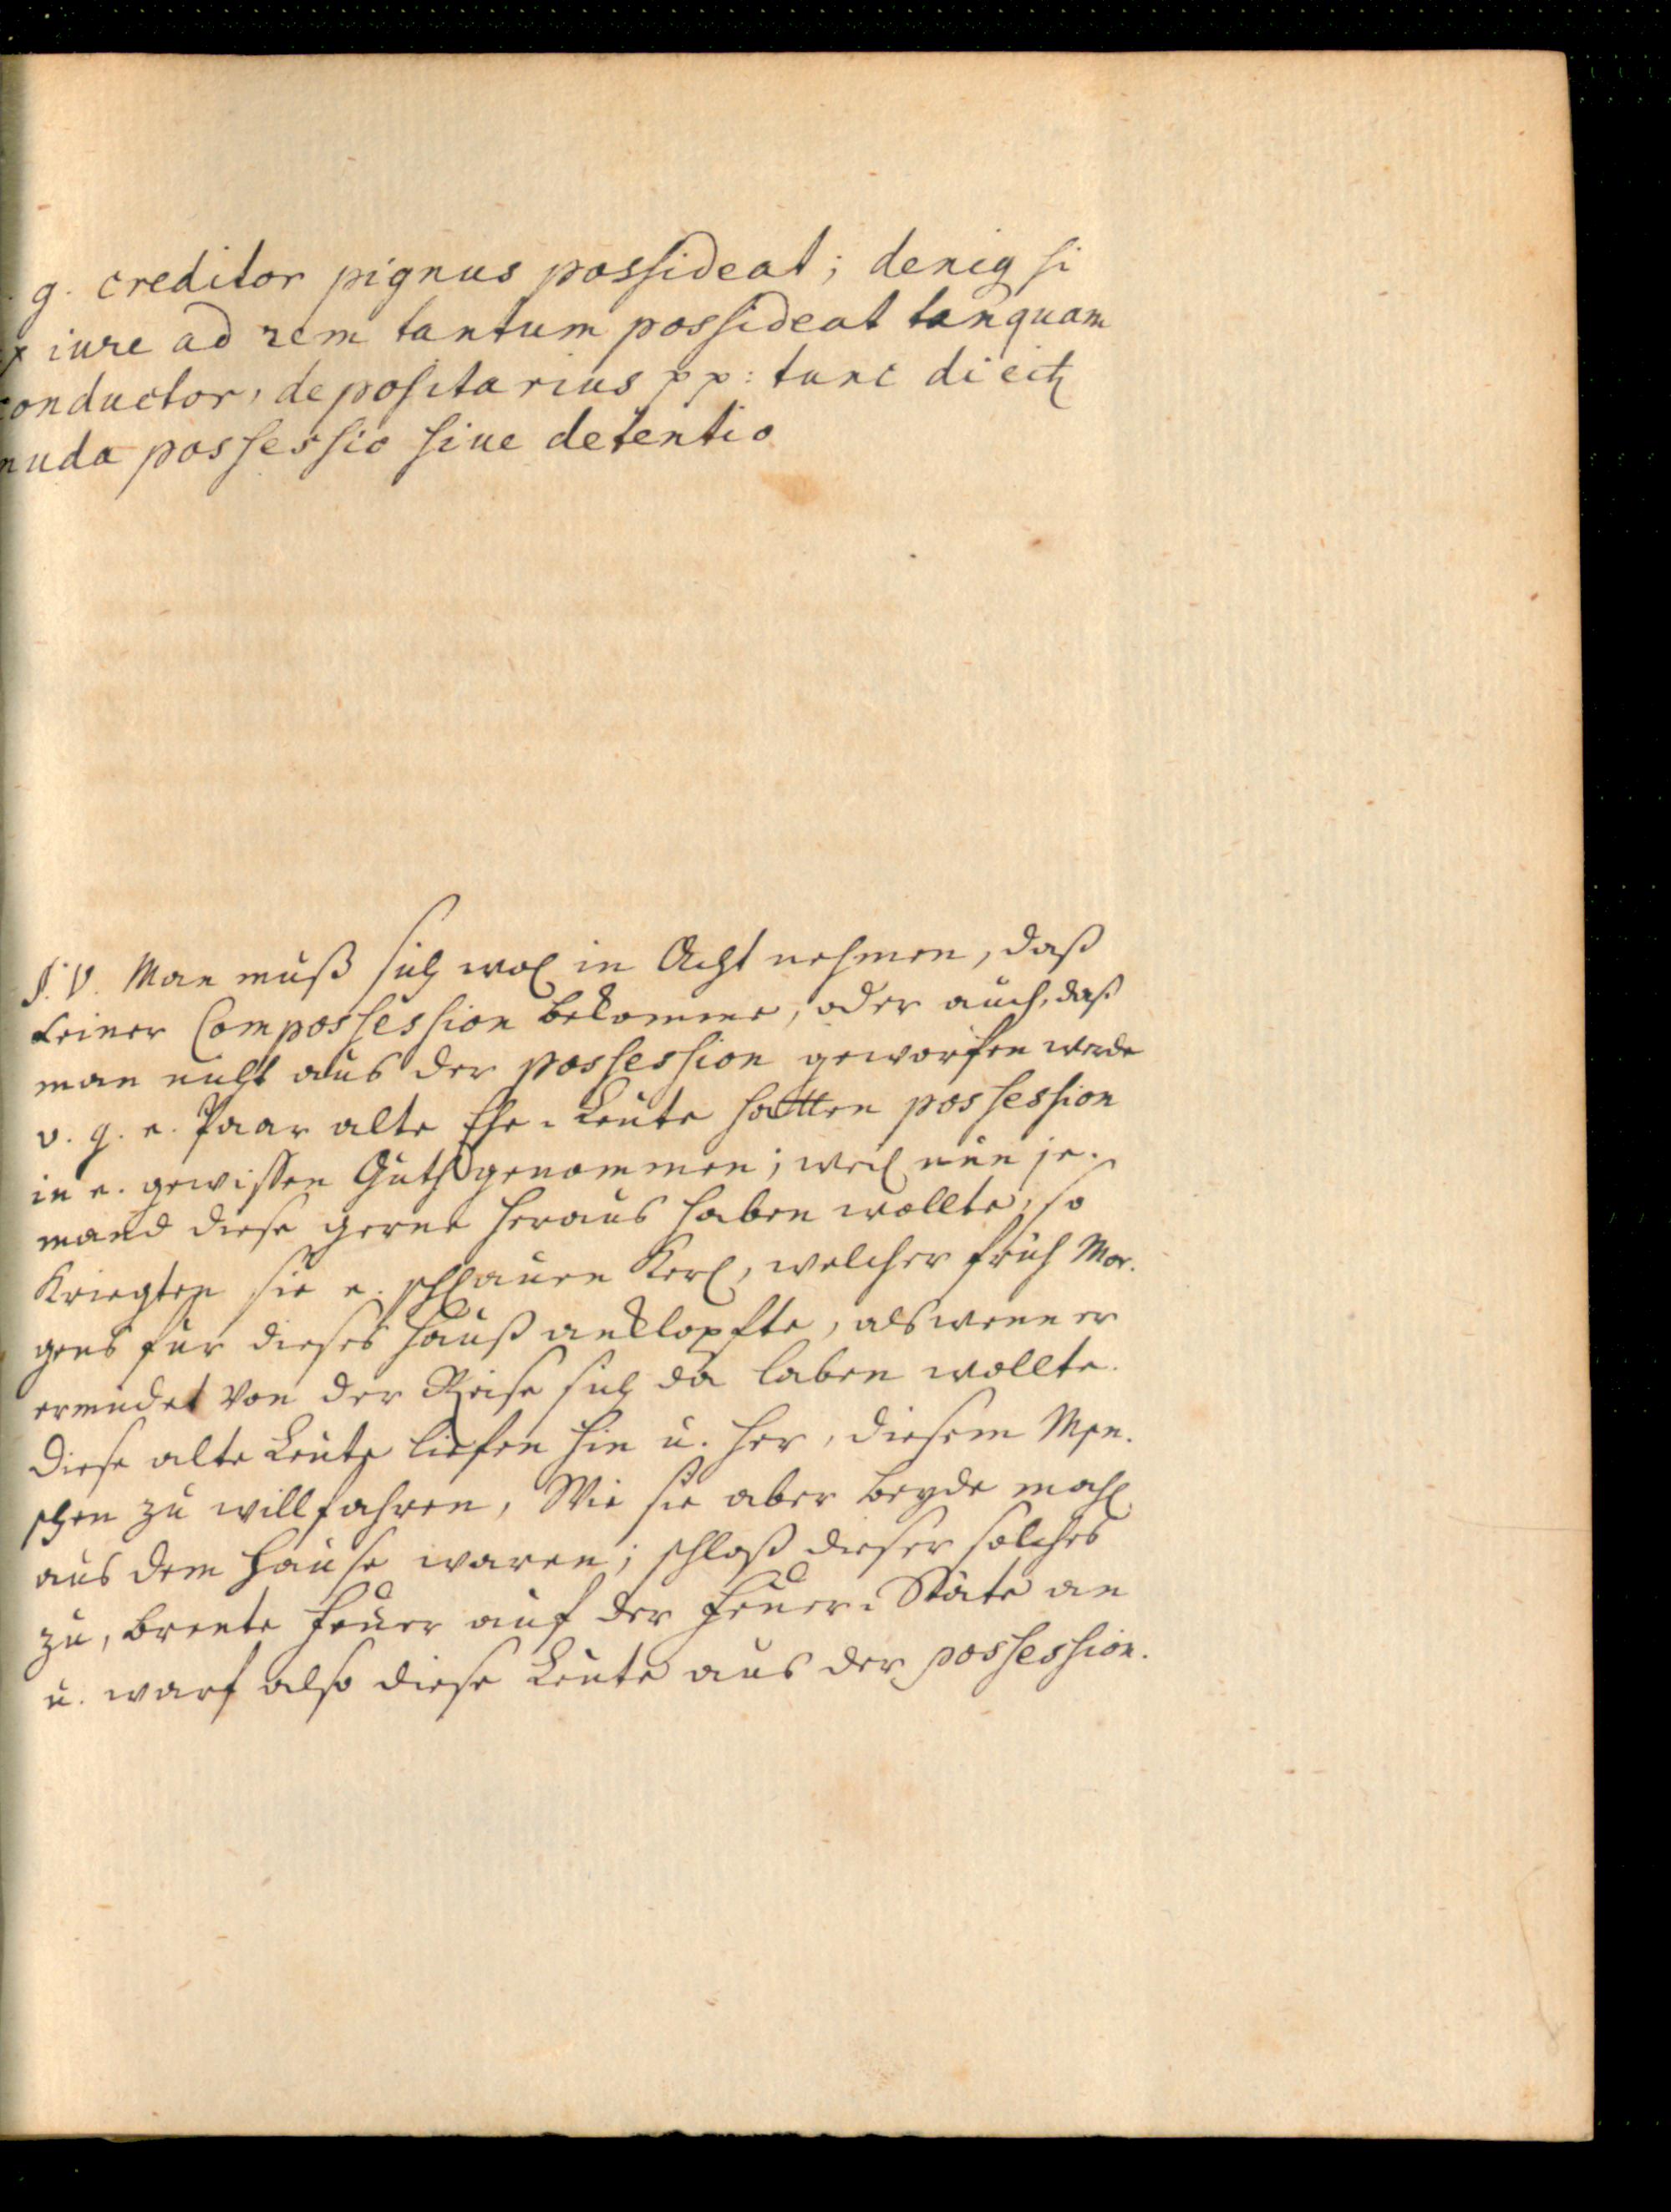 g. creditor pignus possideat; deniq si
x iure ad rem tantum possideat tanquam
conductor, depositarius pp: tunc dicit
nuda possessio siue detentio
§. V. Man muß sich wol in Acht nehmen, daß
keiner Compossession bekomme, oder auch, daß
man nicht aus der possession geworfen werde
v. g. e. Paar alte Ehe-Leute hatten possession
in e. gewissen Guth genommen; weil nun je-
mand diese gerne heraus haben wollte; so
kriegten sie e. schlauen Kerl, welcher früh Mor-
gens für dieses Hauß anklopfte, als wenn er
ermüdet von der Reise sich da laben wollte.
Diese alte Leute liefen hin u. her, diesem Men-
schen zu willfahren, Wie sie aber beyde mahl
aus dem Hause waren; schloß dieser solches
zu, brente Feuer auf der Feuer-Stäte an
u. warf also diese Leute aus der possession.